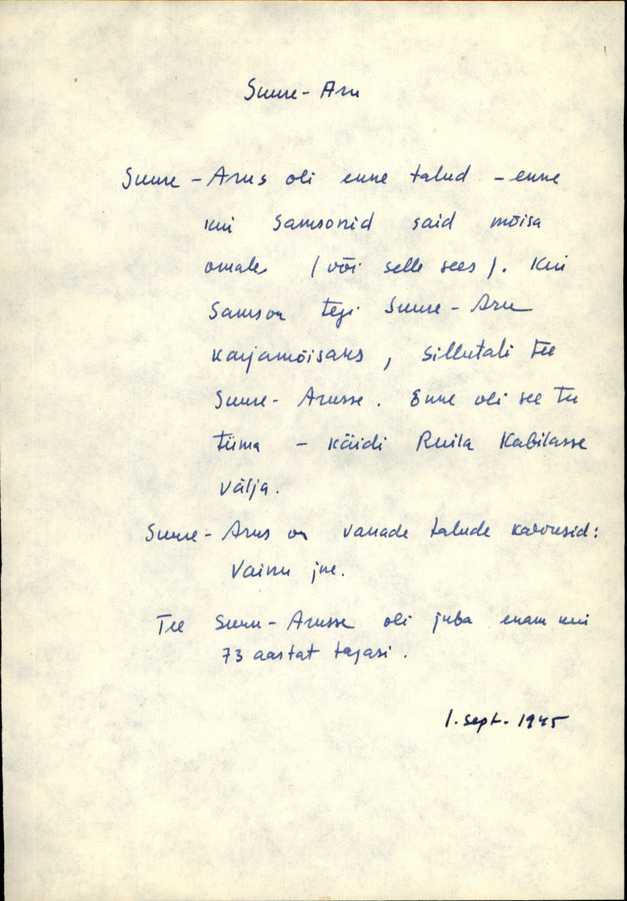 Suure-Aru
Suure-Arus oli enne talud - enne
kui Samsonid said mõisa
omale (või selle sees). Kui
Samson tegi Suure-Aru
karjamõisaks, sillutati tee
Suure-Arusse. Enne oli see tee
tüma - käidi Ruila Kabilasse
välja.
Suure-Arus on vanade talude kaevusid:
Vainu jne.
Tee Suure-Arusse oli juba enam kui
73 aastat tagasi.
1. sept. 1945